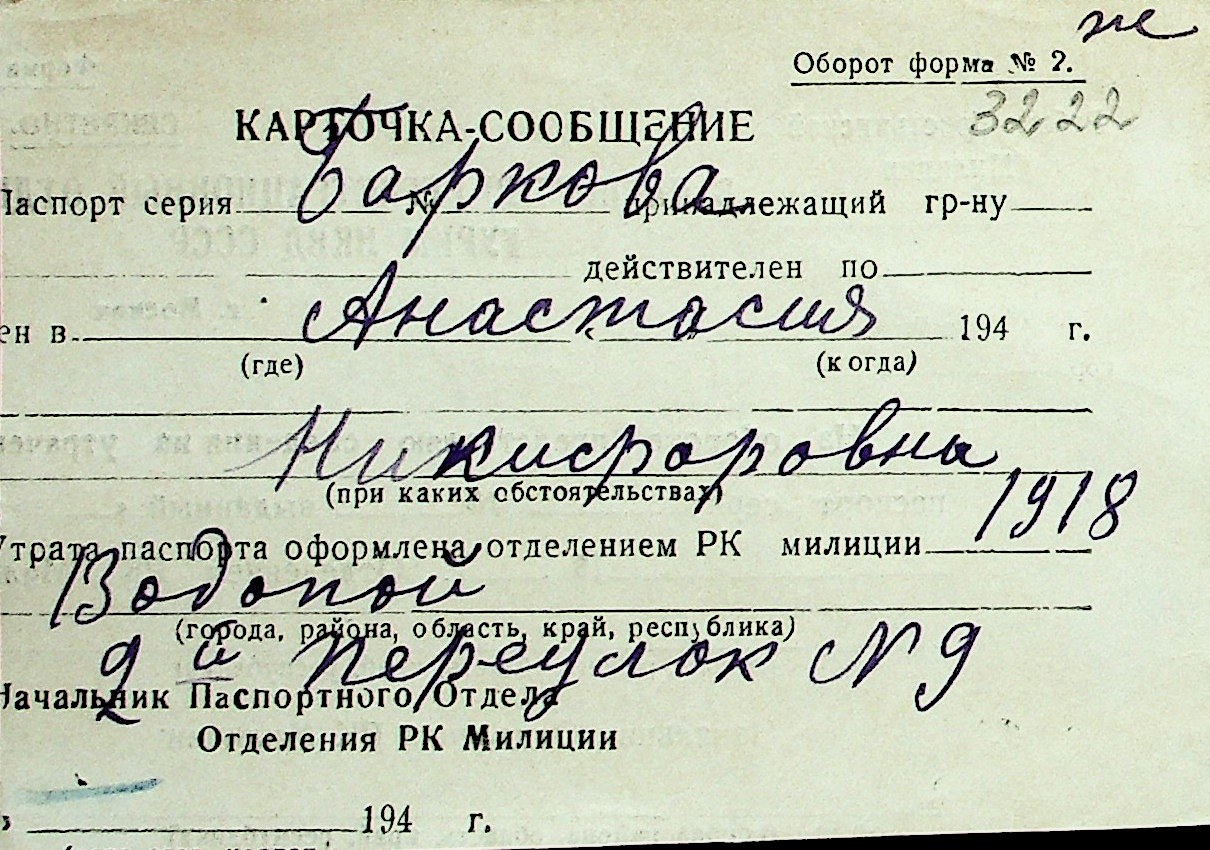 ж
Оборот форма № 2.
3222
КАРТОЧКА-СООБЩЕНИЕ
Баркова
Паспорт серия № принадлежащий гр-ну
действителен по
Анастасия
ен в « » 194 г.
(где) (когда)
Никифоровна
(при каких обстоятельствах)
1918
Утрата паспорта оформлена отделением РК милиции
Водопой
(города, района, область, край, республика)
2й переулок N 9
Начальник Паспортного Отдела
Отделения РК Милиции
194 г.